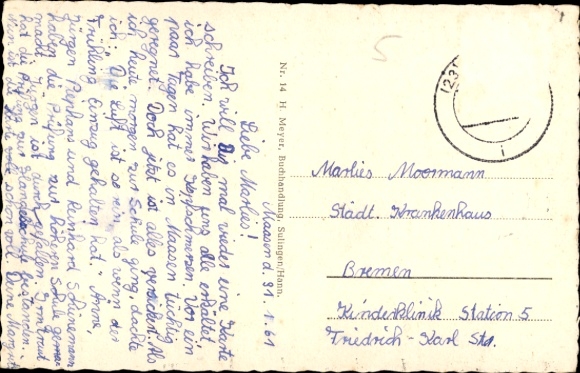 Maasen d. 31.1.61
Liebe Marlies!
Ich will Dir mal wieder eine Karte
schreiben. Wir haben uns alle erkältet.
ich habe immer Kopfschmerzen. Vor ein
paar Tagen hat es in Maasen tüchtig
geregnet. Doch jetzt ist alles Als
ich heute morgen zur Schule ging, dachte
ich: Die Luft ist so rein, als wenn der
Frühling Einzug gehalten hat. Anne,
Jürgen und Reinhard
haben die Prüfung zur höheren Schule
macht. Jürgen ist durchgefallen.
hat die zur bestanden.
schon voll Deine
Nr. 14 H. Meyer, Buchhandlung, Sulingen/Hann.
(23
Marlies Moormann
Städt. Krankenhaus
Bremen
Kinderklinik Station 5
Friedrich-Karl Str.